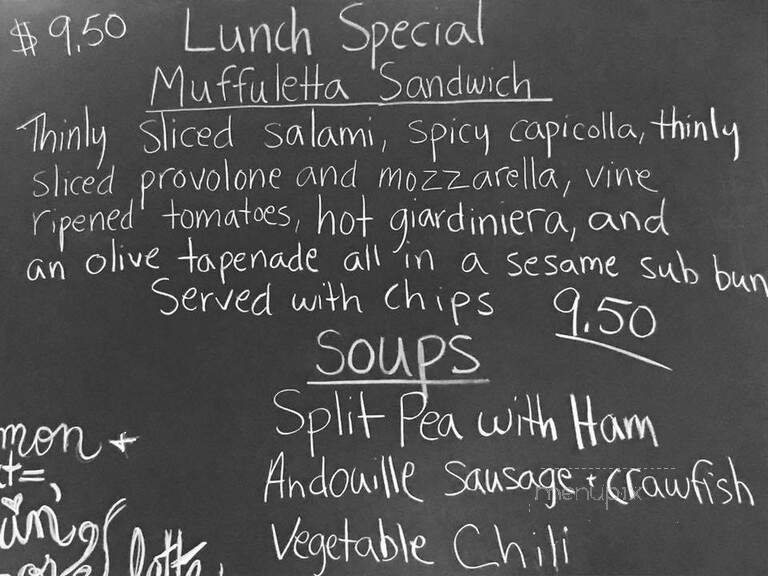 $9.50 Lunch Special
Muffuletta Sandwich
Thinly sliced salami, spicy capicolla, thinly
sliced provolone and mozzarella, vine
ripened tomatoes, hot giardiniera, and
an olive tapenade all in a sesame sub bun
Served with chips 9.50
Soups
Split Pea with Ham
mon +
Andouille Sausage + Crawfish
menupix
Vegetable Chili
latte